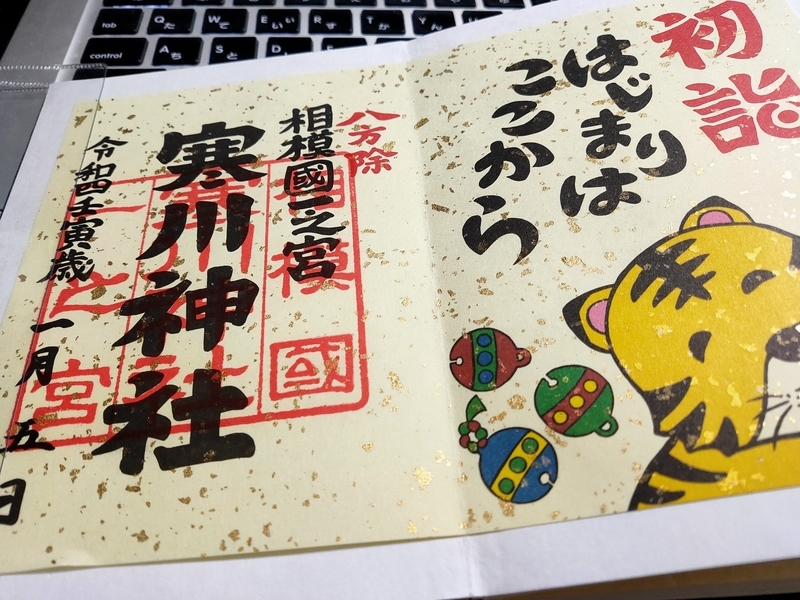 初詣
はじまりは
ここから
八方除
相模國一之宮
寒川神社
令和四壬寅歳
一月五日
相模國
一之宮
tab
Q た
W て
E い ぃ
R す
T か
Y ん
control
A ち
S と
D し